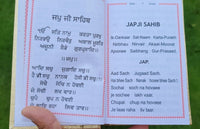 ਜਪੁ ਜੀ ਸਾਹਿਬ
ੴ ਸਤਿ ਨਾਮੁ ਕਰਤਾ ਪੁਰਖੁ
ਨਿਰਭਉ ਨਿਰਵੈਰੁ ਅਕਾਲ ਮੂਰਤਿ
ਅਜੂਨੀ ਸੈਭੰ ਗੁਰਪ੍ਰਸਾਦਿ॥
॥ ਜਪੁ ॥
ਆਦਿ ਸਚੁ ਜੁਗਾਦਿ ਸਚੁ॥
ਹੈ ਭੀ ਸਚੁ ਨਾਨਕ ਹੋਸੀ ਭੀ ਸਚੁ॥
JAPJI SAHIB
Sat-Naam Karta-Purakh
Nirbhau Nirvair Akaal-Moorat
Ajooni Saibhang Gur-Parsad
JAP
Aad Sach Jugaad Sach.
Hai bhee Sach Nanak hosee bhee Sach
sochai soch na hovaee
je sochee lakh vaar.
Chupai chup na hovaee
je laae raha liv taar.